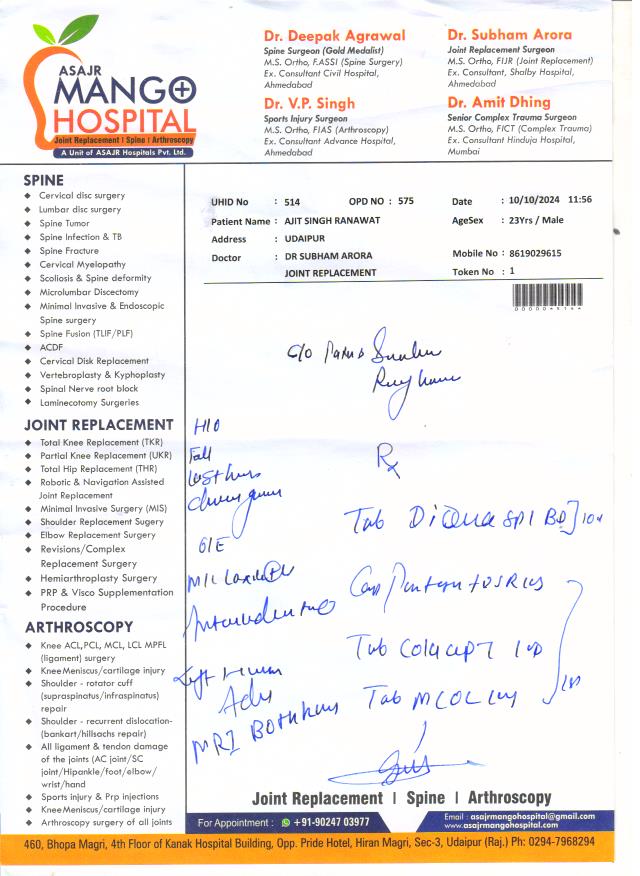 ASAJR
MANGO
HOSPITAL
Joint Replacement | Spine | Arthroscopy
A Unit of ASAJR Hospitals Pvt. Ltd.
Dr. Deepak Agrawal
Spine Surgeon (Gold Medalist)
M.S. Ortho, F.ASSI (Spine Surgery)
Ex. Consultant Civil Hospital,
Ahmedabad
Dr. Subham Arora
Joint Replacement Surgeon
M.S. Ortho, FIJR (Joint Replacement)
Ex. Consultant, Shalby Hospital,
Ahmedabad
Dr. V.P. Singh
Sports Injury Surgeon
M.S. Ortho, FIAS (Arthroscopy)
Ex. Consultant Advance Hospital,
Ahmedabad
Dr. Amit Dhing
Senior Complex Trauma Surgeon
M.S. Ortho, FICT (Complex Trauma)
Ex. Consultant Hinduja Hospital,
Mumbai
UHID No : 514 OPD NO : 575 Date : 10/10/2024 11:56
Patient Name : AJIT SINGH RANAWAT AgeSex : 23Yrs / Male
Address : UDAIPUR
Doctor : DR SUBHAM ARORA Mobile No : 8619029615
JOINT REPLACEMENT Token No : 1
SPINE
Cervical disc surgery
Lumbar disc surgery
Spine Tumor
Spine Infection & TB
Spine Fracture
Cervical Myelopathy
Scoliosis & Spine deformity
Microlumbar Discectomy
Minimal Invasive & Endoscopic
Spine surgery
Spine Fusion (TLIF/PLF)
ACDF
Cervical Disk Replacement
Vertebroplasty & Kyphoplasty
Spinal Nerve root block
Laminecotomy Surgeries
JOINT REPLACEMENT
Total Knee Replacement (TKR)
Partial Knee Replacement (UKR)
Total Hip Replacement (THR)
Robotic & Navigation Assisted
Joint Replacement
Minimal Invasive Surgery (MIS)
Shoulder Replacement Sugery
Elbow Replacement Surgery
Revisions/Complex
Replacement Surgery
Hemiarthroplasty Surgery
PRP & Visco Supplementation
Procedure
ARTHROSCOPY
Knee ACL,PCL, MCL, LCL MPFL
(ligament) surgery
KneeMeniscus/cartilage injury
Shoulder - rotator cuff
(supraspinatus/infraspinatus)
repair
Shoulder - recurrent dislocation-
(bankart/hillsachs repair)
All ligament & tendon damage
of the joints (AC joint/SC
joint/Hipankle/foot/elbow/
wrist/hand
Sports injury & Prp injections
KneeMeniscus/cartilage injury
Arthroscopy surgery of all joints
C/O
H/O
Fall
O/E
Adv
MRI Both
Rx
Tab BD
Cap
Tab
Tab
Joint Replacement | Spine | Arthroscopy
For Appointment : +91-90247 03977
Email : asajrmangohospital@gmail.com
www.asajrmangohospital.com
460, Bhopa Magri, 4th Floor of Kanak Hospital Building, Opp. Pride Hotel, Hiran Magri, Sec-3, Udaipur (Raj.) Ph: 0294-7968294